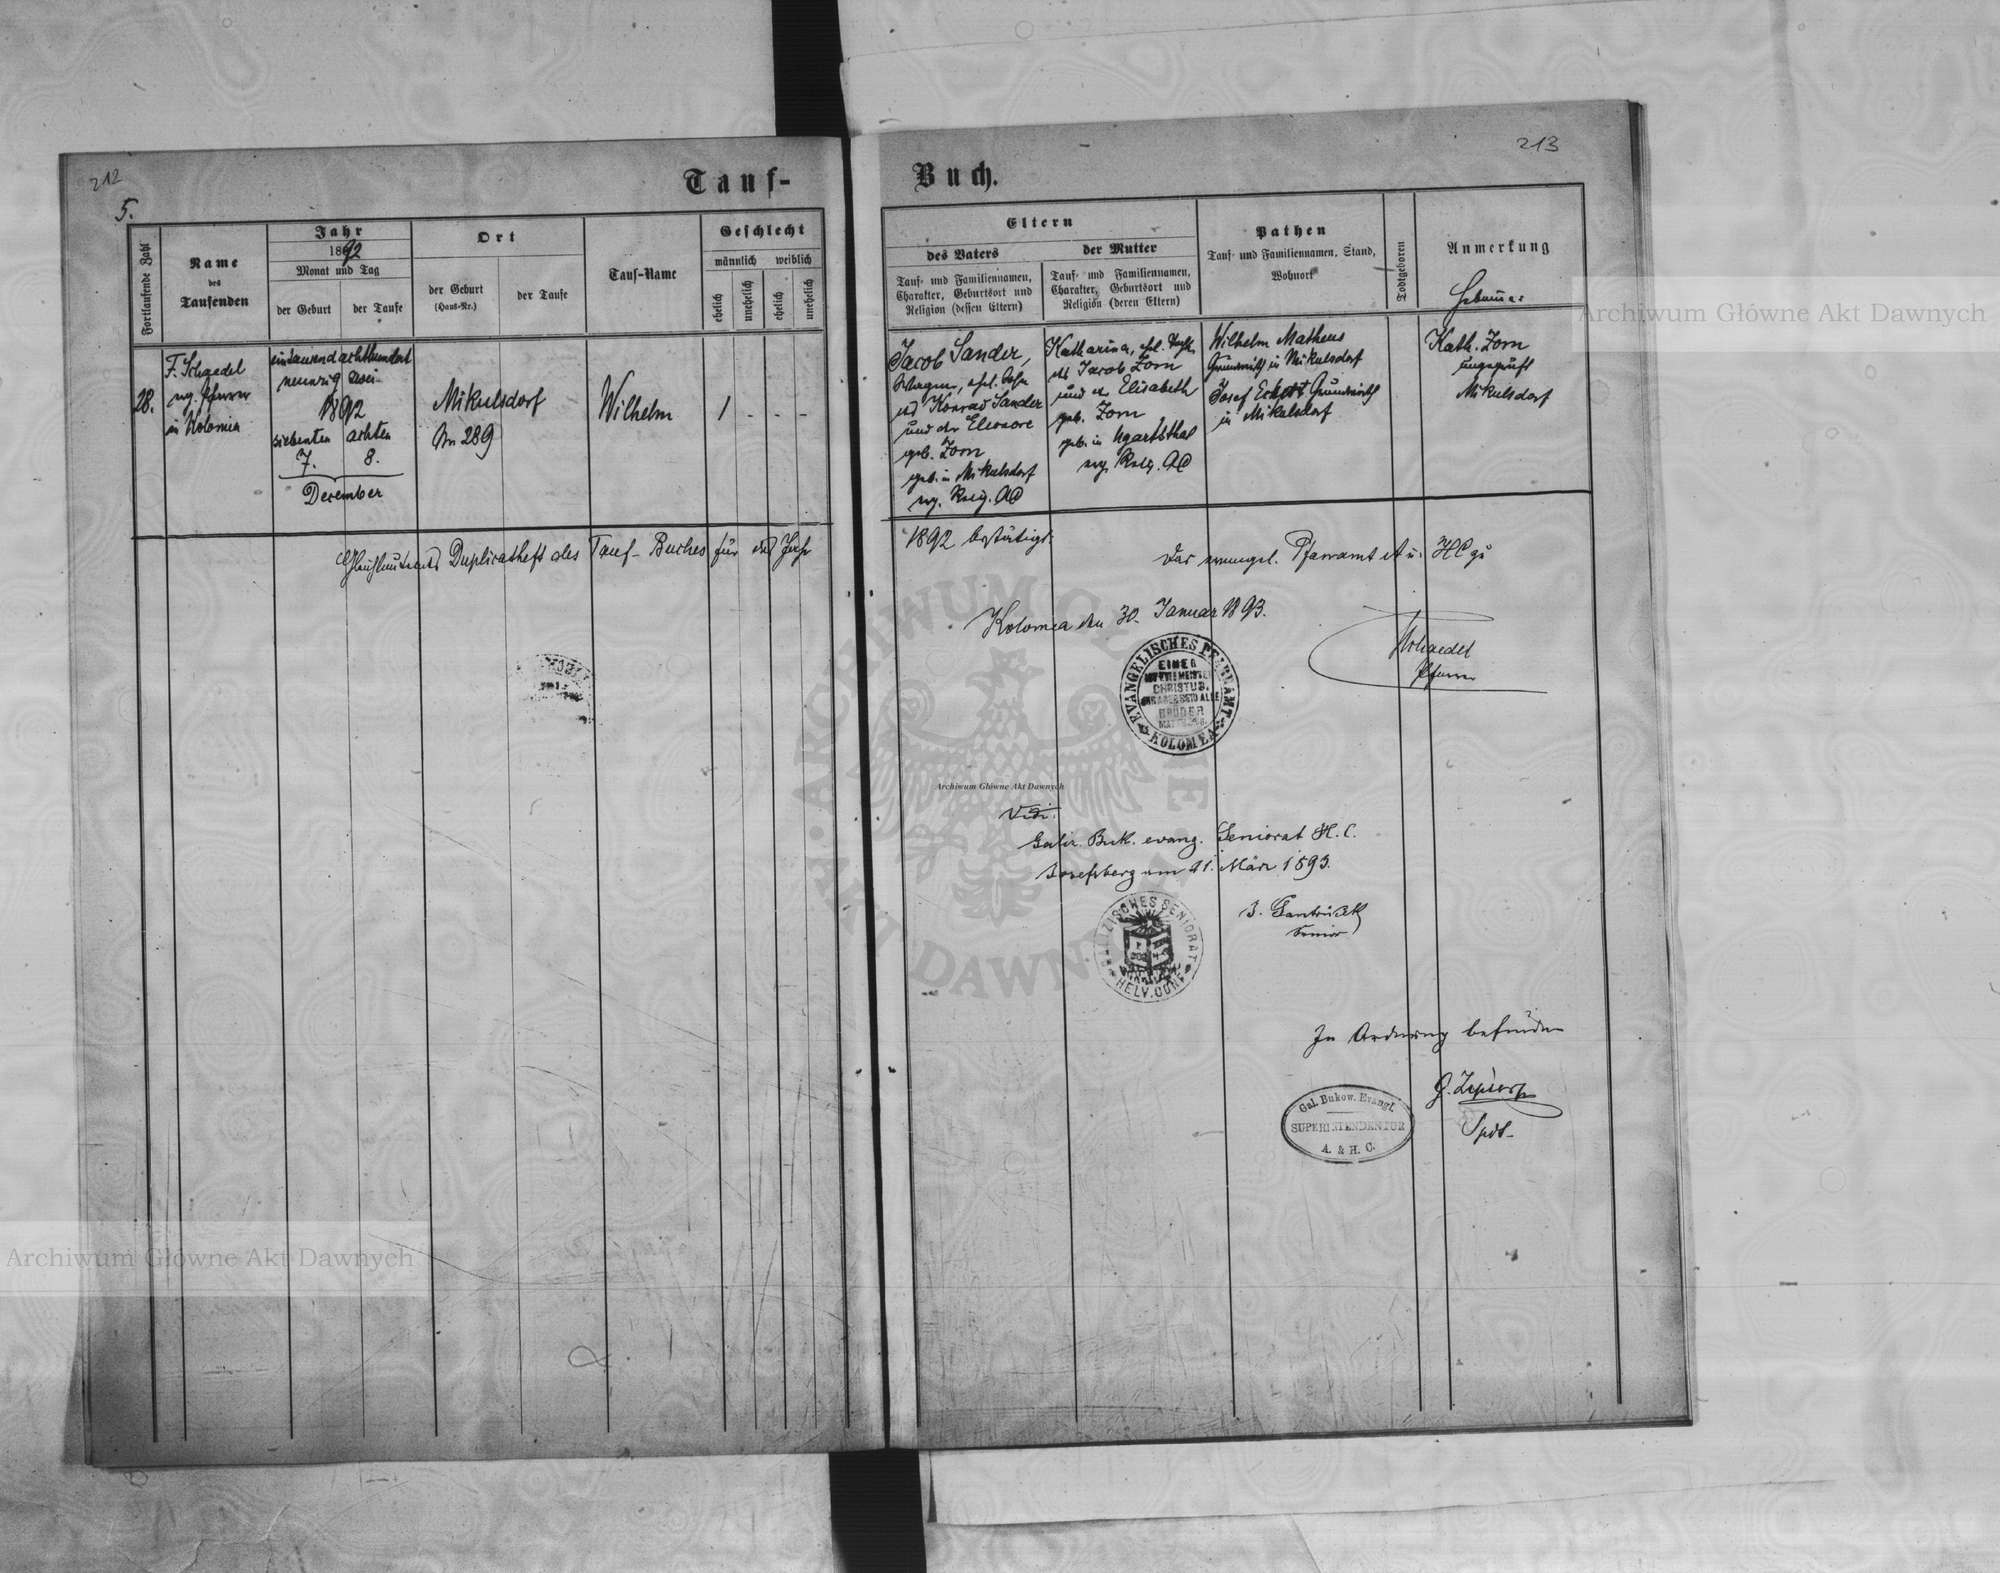 212
213
5.
Tauf-
Buch.
Fortlaufende Zahl
Name
des
Taufenden
Jahr
1892
Monat und Tag
der Geburt
der Taufe
Ort
der Geburt
(Haus-Nr.)
der Taufe
Tauf-Name
Geschlecht
männlich weiblich
ehelich
unehelich
ehelich
unehelich
Eltern
des Vaters
Tauf- und Familiennamen,
Charakter, Geburtsort und
Religion (dessen Eltern)
der Mutter
Tauf- und Familiennamen,
Charakter, Geburtsort und
Religion (deren Eltern)
Pathen
Tauf- und Familiennamen, Stand,
Wohnort
Todtgeboren
Anmerkung
28.
F. Schaedel
evg. Pfarrer
in Kolomea
eintausend achthundert
neunzig zwei
1892
siebenten achten
7. 8.
December
Mikulsdorf
Nro 289
Wilhelm
1 - - -
Jacob Sander,
Wagner, ehl. Sohn
des Konrad Sander
und der Eleonore
geb. Zorn
geb. in Mikulsdorf
evg. Relig. AC
Katharina, ehl. Tocht.
des Jacob Zorn
und d. Elisabeth
geb. Zorn
geb. in Ugartsthal
evg. Relig. AC
Wilhelm Matheus
Grundwirth in Mikulsdorf
Josef Eckert Grundwirth
in Mikulsdorf
Kath. Zorn
ungeprüft
Mikulsdorf
Gleichlautendes Duplicatheft des Tauf-Buches für das Jahr
1892 bestätigt:
Das evangel. Pfarramt A u. HC zu
Kolomea den 30. Januar 1893.
Schaedel
Pfarrer
EVANGELISCHES PFARRAMT
KOLOMEA
EINER
IST EUER MEISTER
CHRISTUS,
IHR ABER SEID ALLE
BRÜDER
Vidi:
Galiz. Buk. evang. Seniorat H. C.
Josefsberg am 21. März 1893.
Senior
GALIZISCHES SENIORAT
HELV. CONF.
In Ordnung befunden
Spdt.
Gal. Bukow. Evangl.
SUPERINTENDENTUR
A. & H. C.
Archiwum Główne Akt Dawnych
Archiwum Główne Akt Dawnych
Archiwum Główne Akt Dawnych
ARCHIWUM GŁÓWNE AKT DAWNYCH